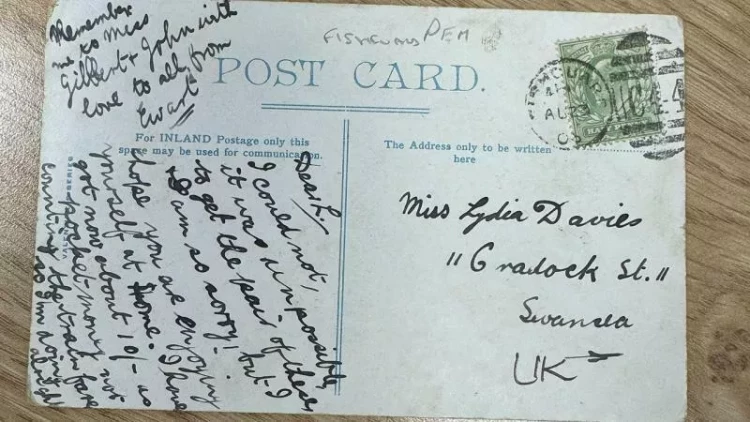 FISHGUARD PEM
POST CARD.
For INLAND Postage only this
space may be used for communication.
The Address only to be written
here
Remember
me to Miss
Gilbert & John with
love to all from
Ewart
Dear L,
I could not,
it was unpossible
to get the pair of these
I am so sorry! but I
hope you are enjoying
yourself at home. I have
got now about 10/- as
pocket-money not
counting the train fare
so I'm doing
alright
Miss Lydia Davies
11 Cradock St.
Swansea
UK
AU